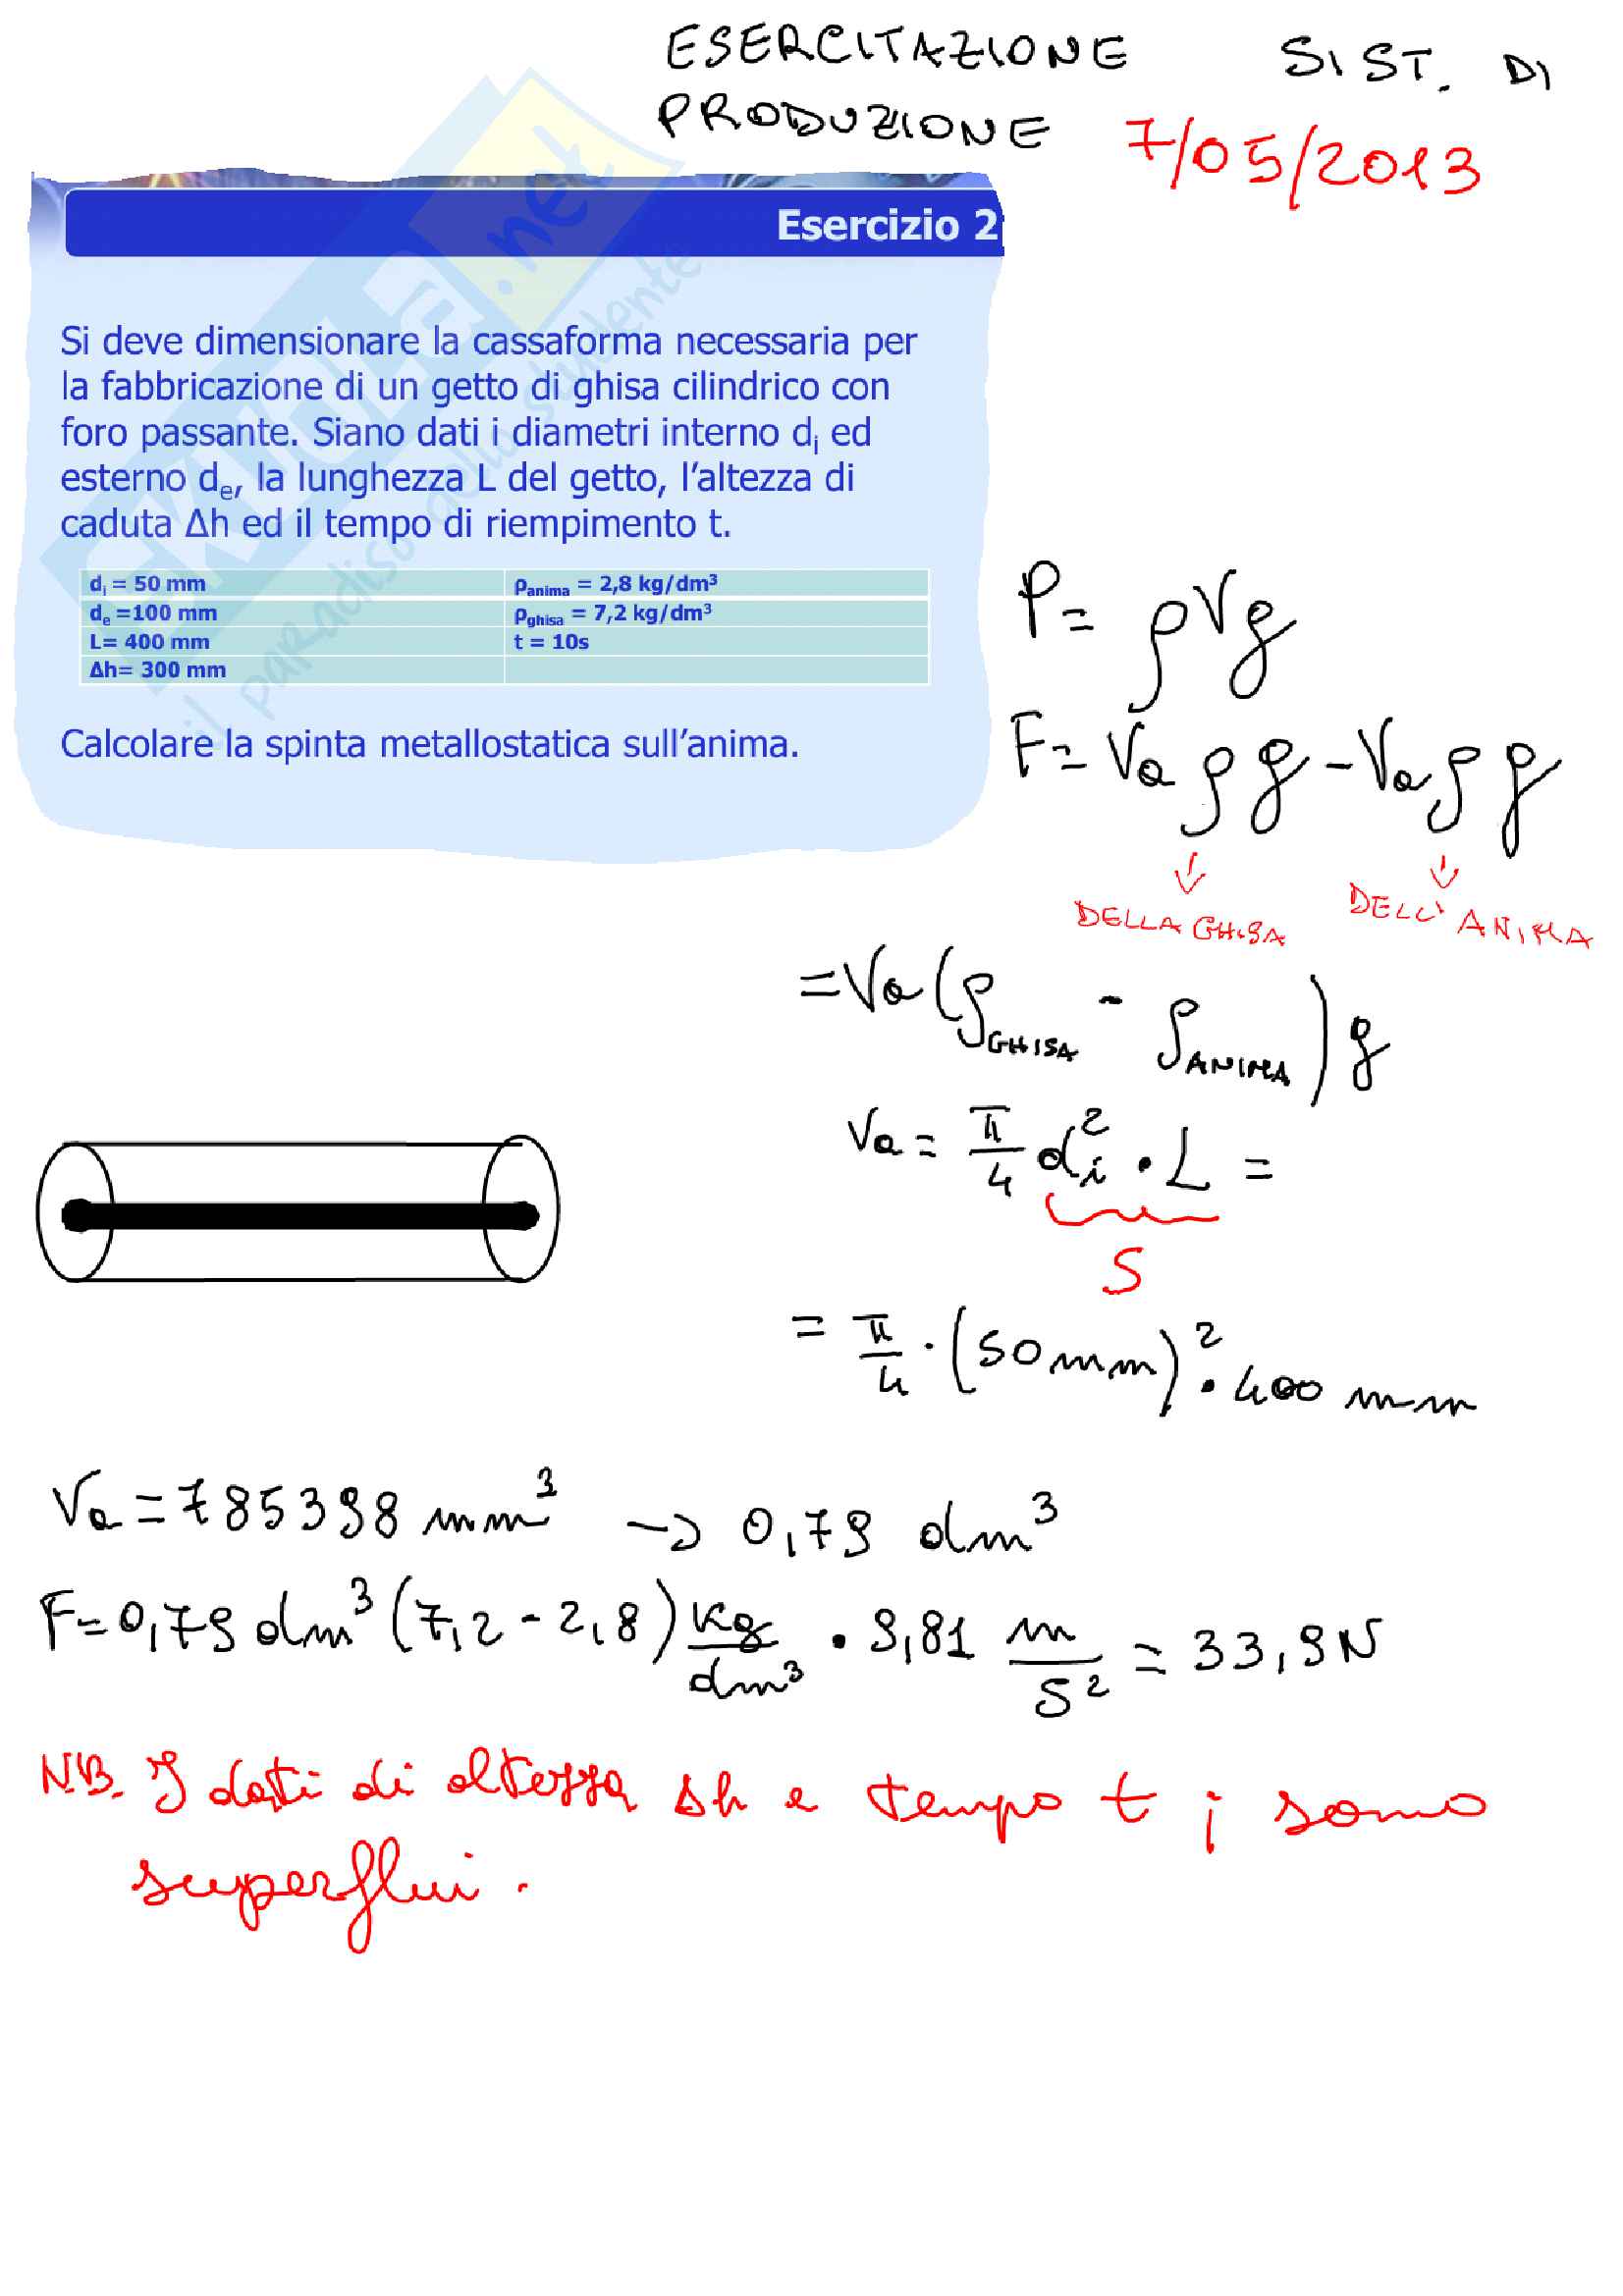 ESERCITAZIONE SIST. DI
PRODUZIONE 7/05/2013
Esercizio 2
SKUOLA.net
il paradiso dello studente
Si deve dimensionare la cassaforma necessaria per
la fabbricazione di un getto di ghisa cilindrico con
foro passante. Siano dati i diametri interno dᵢ ed
esterno dₑ, la lunghezza L del getto, l'altezza di
caduta Δh ed il tempo di riempimento t.
dᵢ = 50 mm ρanima = 2,8 kg/dm³
dₑ =100 mm ρghisa = 7,2 kg/dm³
L= 400 mm t = 10s
Δh= 300 mm
Calcolare la spinta metallostatica sull'anima.
P= ρVg
F= Va ρ g - Va ρ g
DELLA GHISA DELL'ANIMA
=Va(ρGHISA - ρANIMA)g
Va = π/4 dᵢ² • L =
S
= π/4 · (50mm)² • 400 mm
Va = 785398 mm³ → 0,79 dm³
F= 0,79 dm³ (7,2 - 2,8) kg/dm³ • 9,81 m/s² = 33,9N
NB. I dati di altezza Δh e tempo t i sono
superflui.